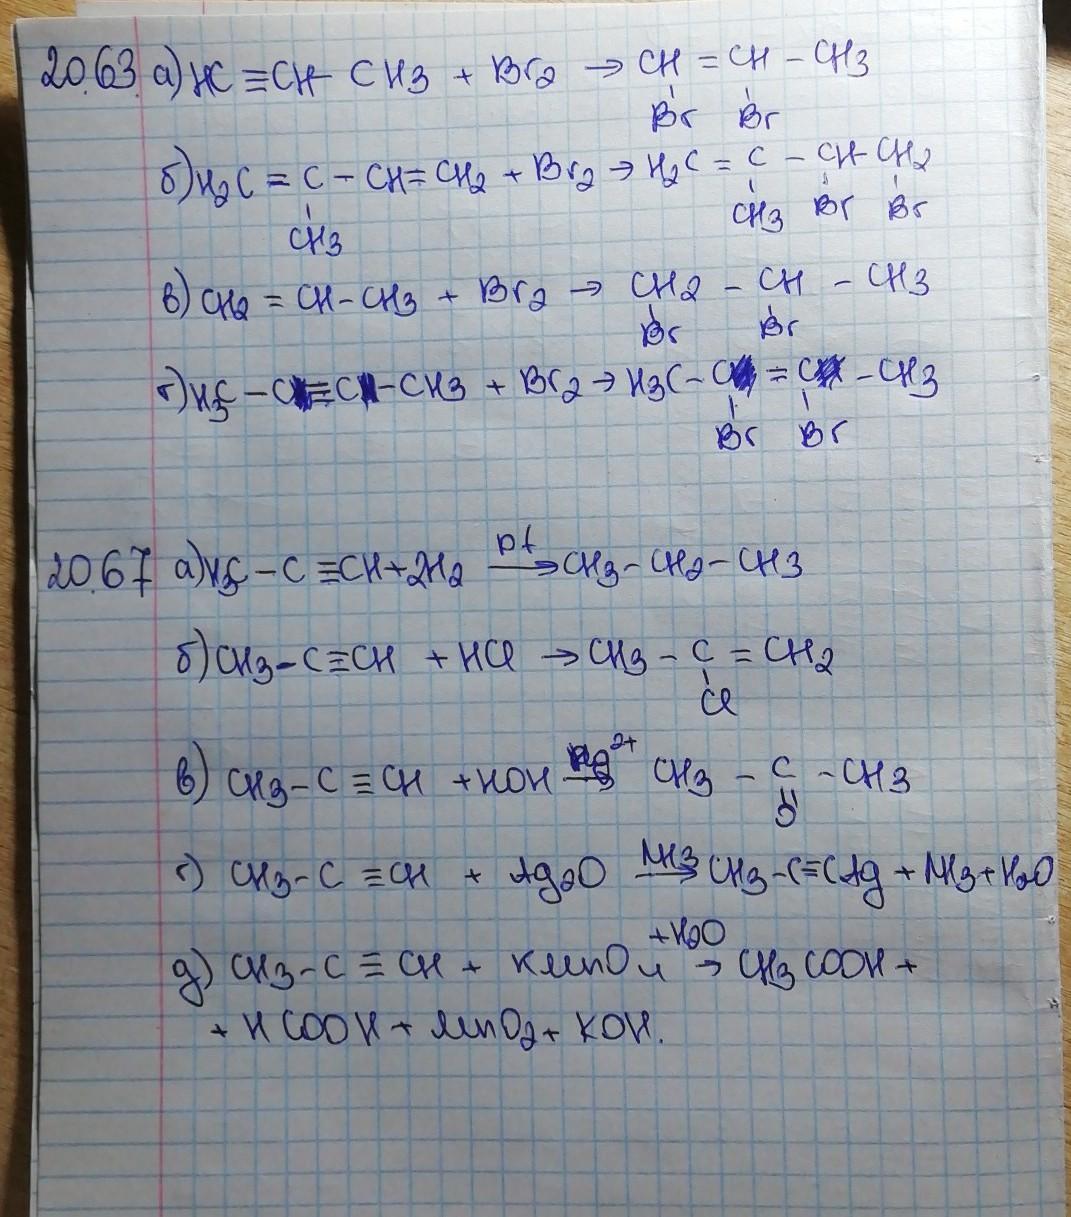 20.63. а) HC ≡ CH - CH3 + Br2 → CH = CH - CH3
Br Br
б) H2C = C - CH = CH2 + Br2 → H2C = C - CH - CH2
CH3 CH3 Br Br
в) CH2 = CH - CH3 + Br2 → CH2 - CH - CH3
Br Br
г) H3C - C ≡ C - CH3 + Br2 → H3C - C = C - CH3
Br Br
20.67 а) H3C - C ≡ CH + 2H2 pt → CH3 - CH2 - CH3
б) CH3 - C ≡ CH + HCl → CH3 - C = CH2
Cl
в) CH3 - C ≡ CH + HOH Hg2+ → CH3 - C - CH3
O
г) CH3 - C ≡ CH + Ag2O NH3 → CH3 - C ≡ CAg + NH3 + H2O
д) CH3 - C ≡ CH + KMnO4 +H2O → CH3COOH +
+ HCOOH + MnO2 + KOH.